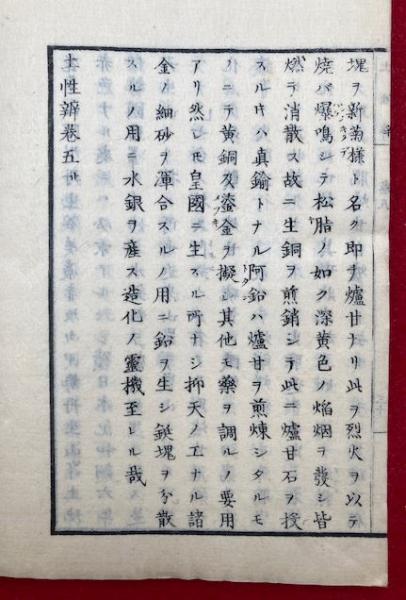 塊ヲ新菊様ト名ク即チ爐甘ナリ此ヲ烈火ヲ以テ
燒バ爆鳴シテ松脂ノ如ク深黄色ノ焔烟ヲ發シ皆
燃テ消散ス故ニ生銅ヲ煎銷シテ此ニ爐甘石ヲ投
スル𪜈ハ真鍮トナル阿鉛ハ爐甘ヲ煎煉シタルモ
ノニテ黄銅及鍌金ヲ擬シ其他モ藥ヲ調ルノ要用
アリ然レ𪜈皇國ニ生スル所ナシ抑天ノ工ナル諸
金ノ細砂ヲ渾合スルノ用ニ鉛ヲ生シ鋌塊ヲ分散
スルノ用ニ水銀ヲ産ス造化ノ靈機至レル哉
土性辨巻五止